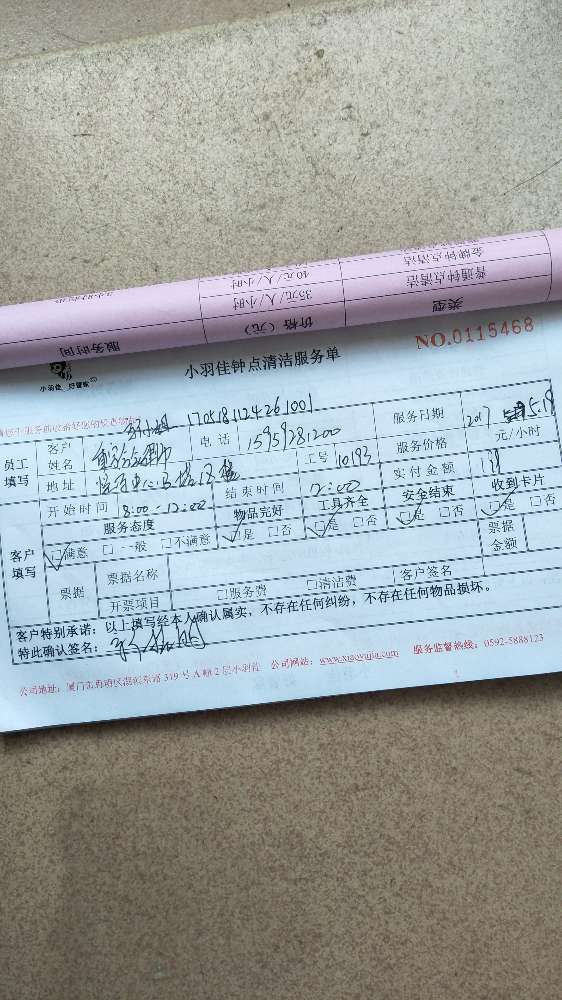 金牌钟点清洁
普通钟点清洁 40元/人/小时
35元/人/小时
类型 价格（元） 服务时间
NO.0115468
小羽佳 好管家
小羽佳钟点清洁服务单
1705181124261001
员工填写 客户姓名 电话 15959281200 服务日期 2017 5.19
地址 工号 10193 服务价格 元/小时
开始时间 8:00-12:00 结束时间 12:00 实付金额
客户填写 服务态度 物品完好 工具齐全 安全结束 收到卡片
☑满意 □一般 □不满意 ☑是 □否 ☑是 □否 ☑是 □否 ☑是 □否
票据 票据名称 票据金额
开票项目 □服务费 □清洁费 客户签名
客户特别承诺：以上填写经本人确认属实，不存在任何纠纷，不存在任何物品损坏。
特此确认签名：
公司地址：厦门 319号A幢2层小羽佳 公司网站：www.xiaoyujia.com 服务监督热线：0592-5888123